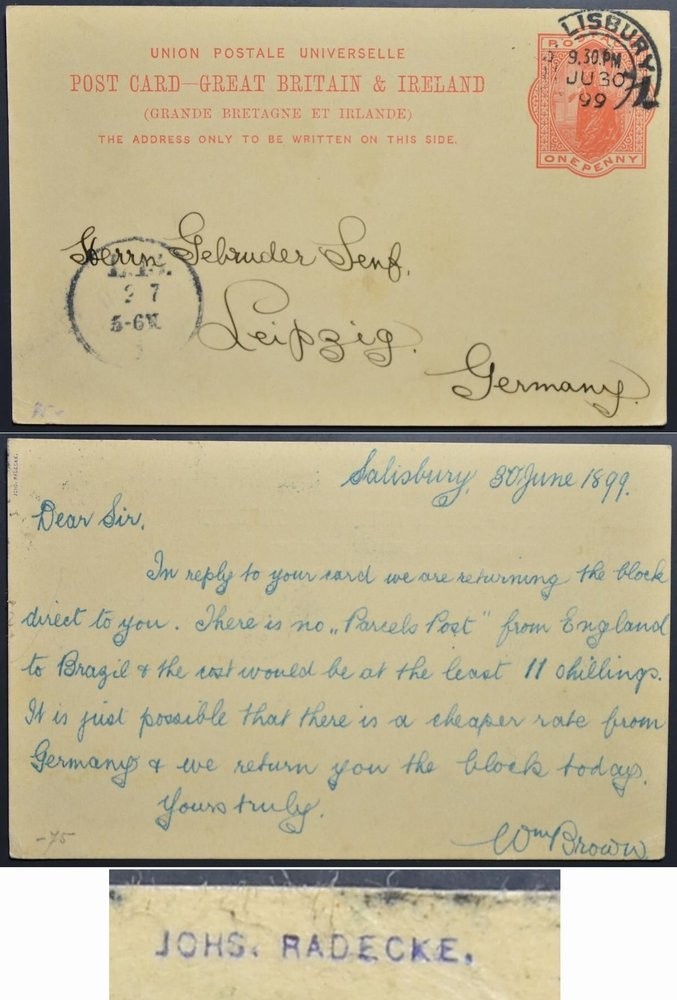 UNION POSTALE UNIVERSELLE
POST CARD—GREAT BRITAIN & IRELAND
(GRANDE BRETAGNE ET IRLANDE)
THE ADDRESS ONLY TO BE WRITTEN ON THIS SIDE.
LISBURY
9.30.PM
JU 30
99
POSTAL
ONE PENNY
Herrn Gebruder Senf.
Leipzig.
Germany.
2 7
5-6N.
Salisbury, 30 June 1899.
Dear Sir,
In reply to your card we are returning the block
direct to you. There is no „Parcels Post" from England
to Brazil & the cost would be at the least 11 shillings.
It is just possible that there is a cheaper rate from
Germany & we return you the block today.
Yours truly.
Wm Brown
-75
JOHS. RADECKE.